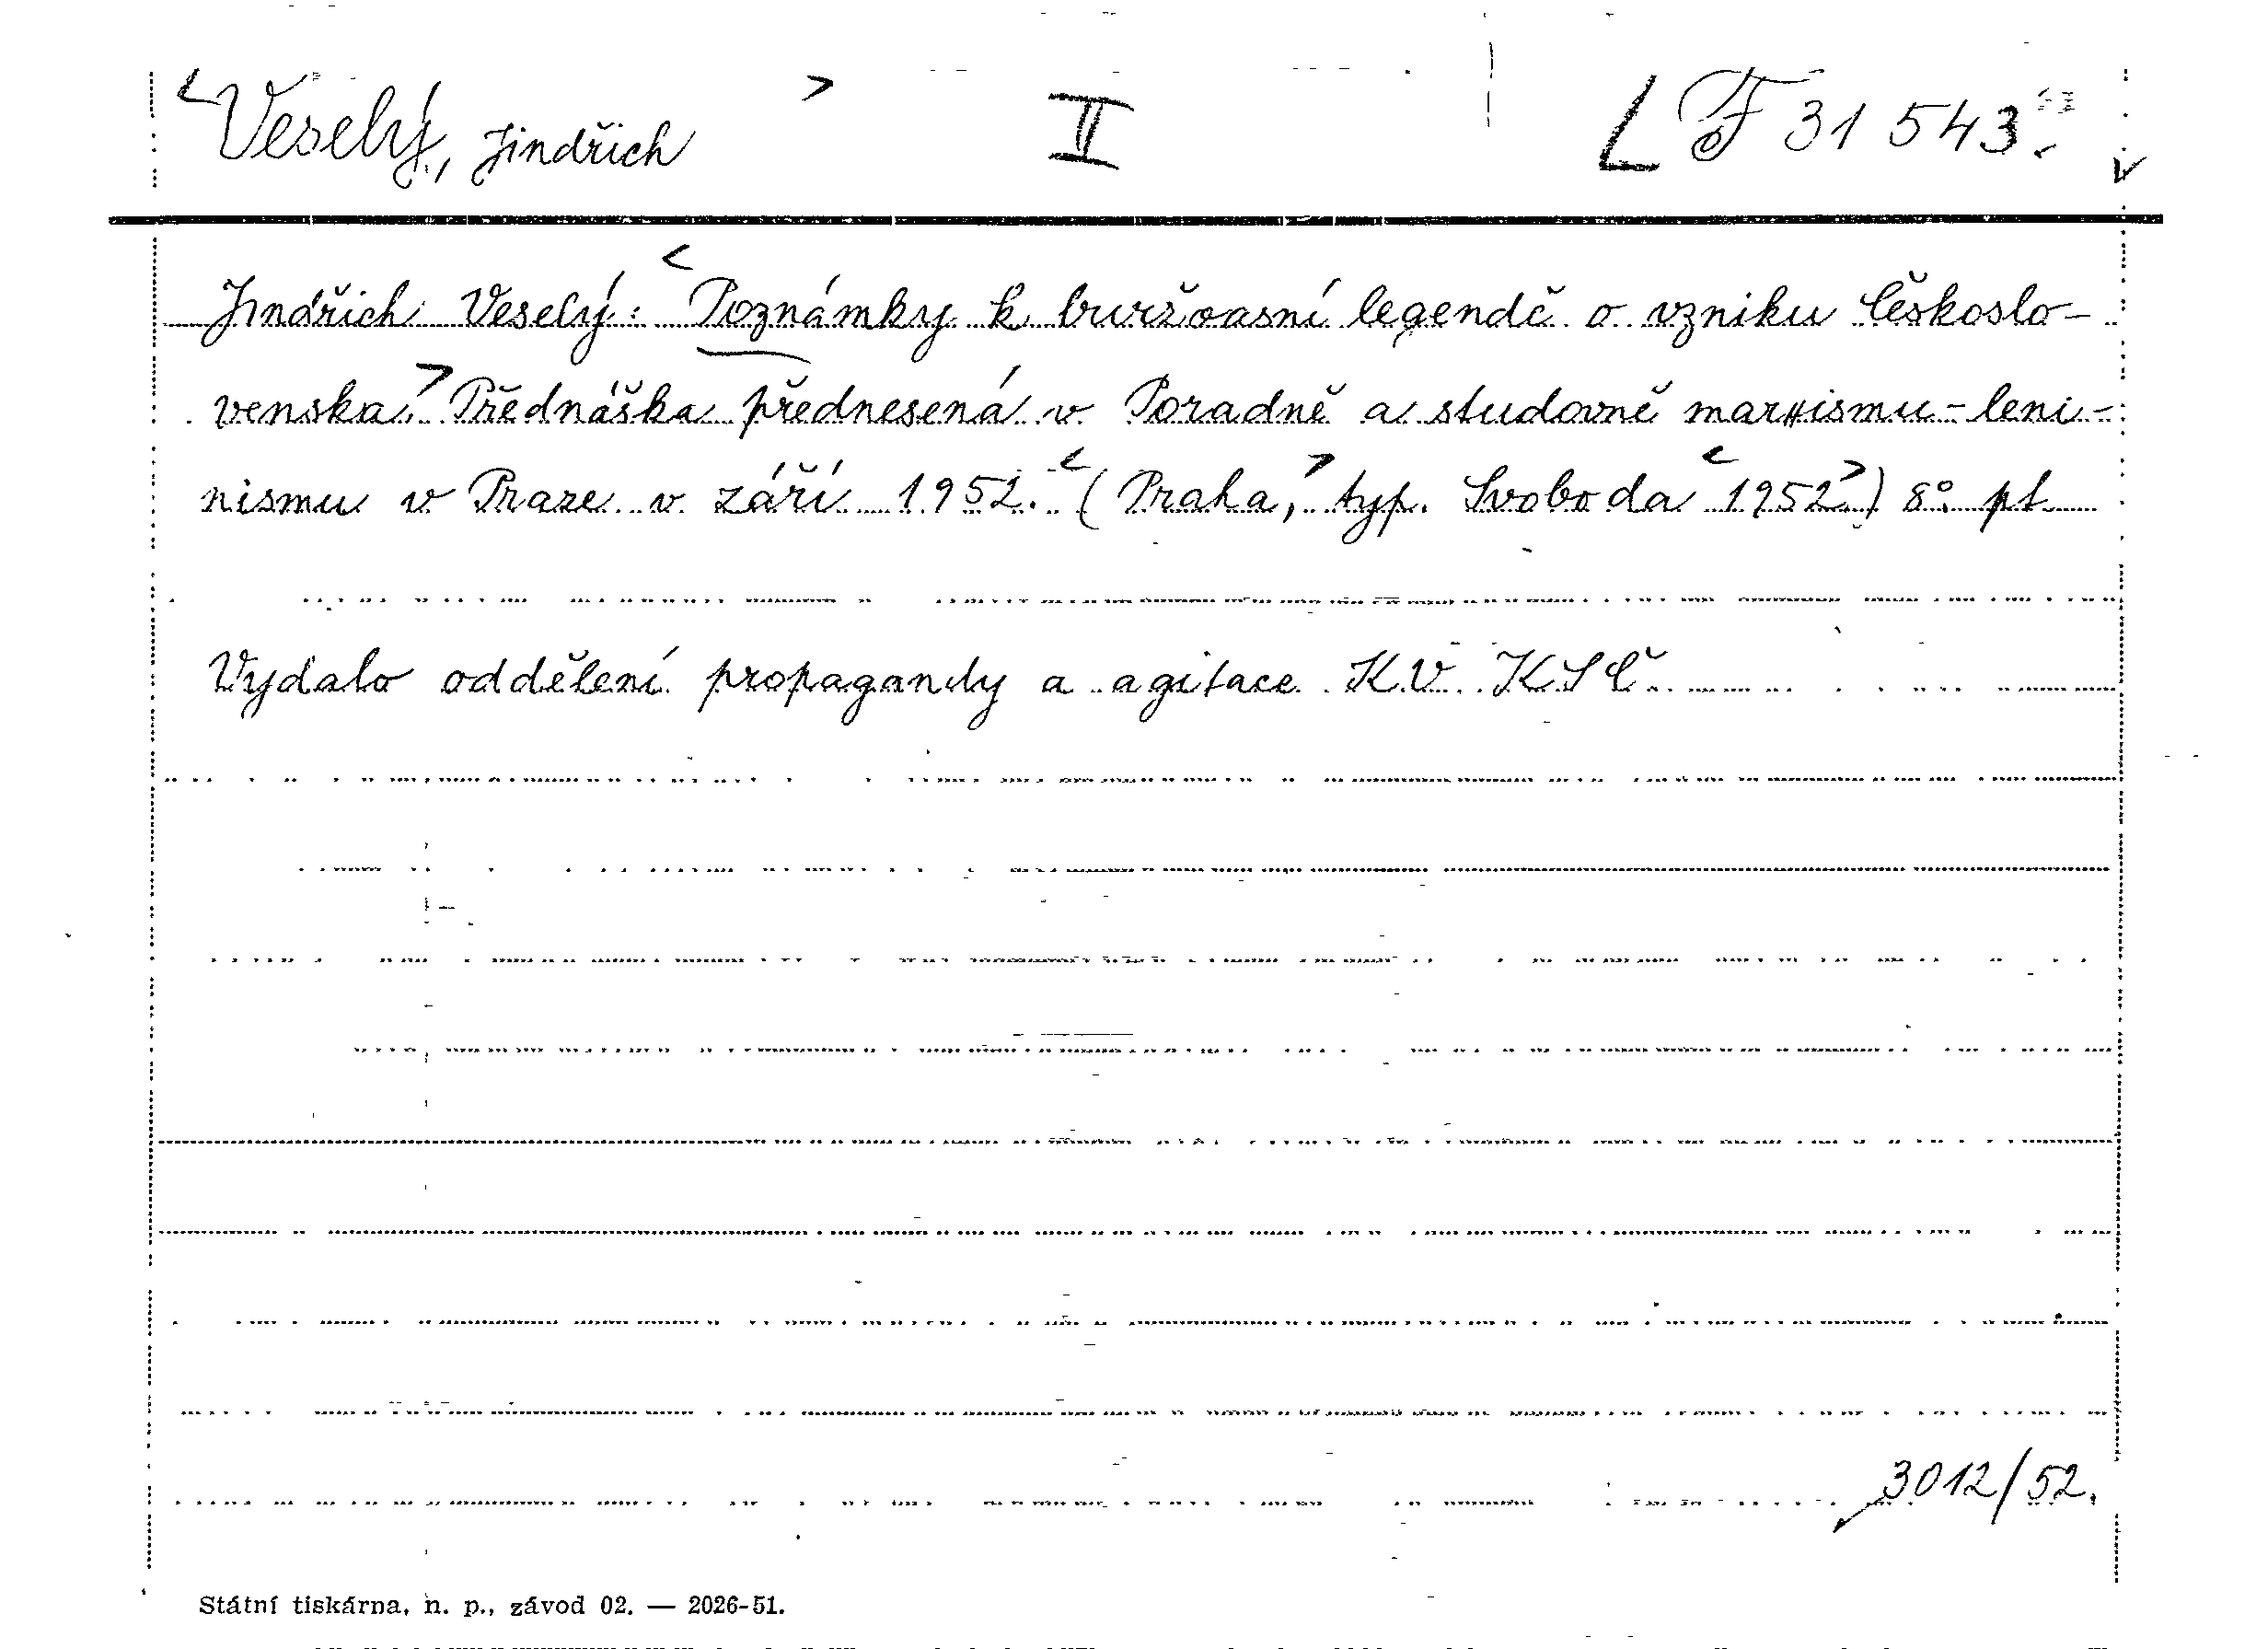 <Veselý, Jindřich> II L F 31 543.
Jindřich Veselý: <Poznámky k buržoasní legendě o vzniku Českoslo-
venska.> Přednáška přednesená v Poradně a studovně marxismu-leni-
nismu v Praze v září 1952. <(Praha,> typ. Svoboda <1952.>) 8°. pt
Vydalo oddělení propagandy a agitace KV KSČ
3012/52.
Státní tiskárna, n. p., závod 02. — 2026-51.